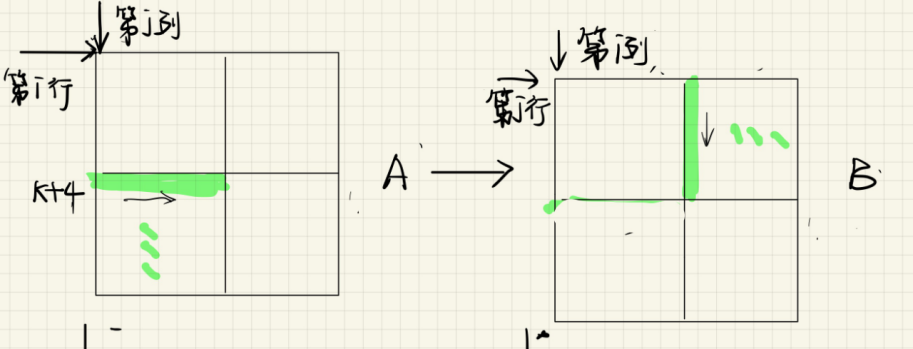 第j列
第i行
K+4
A
第i列
第j行
B